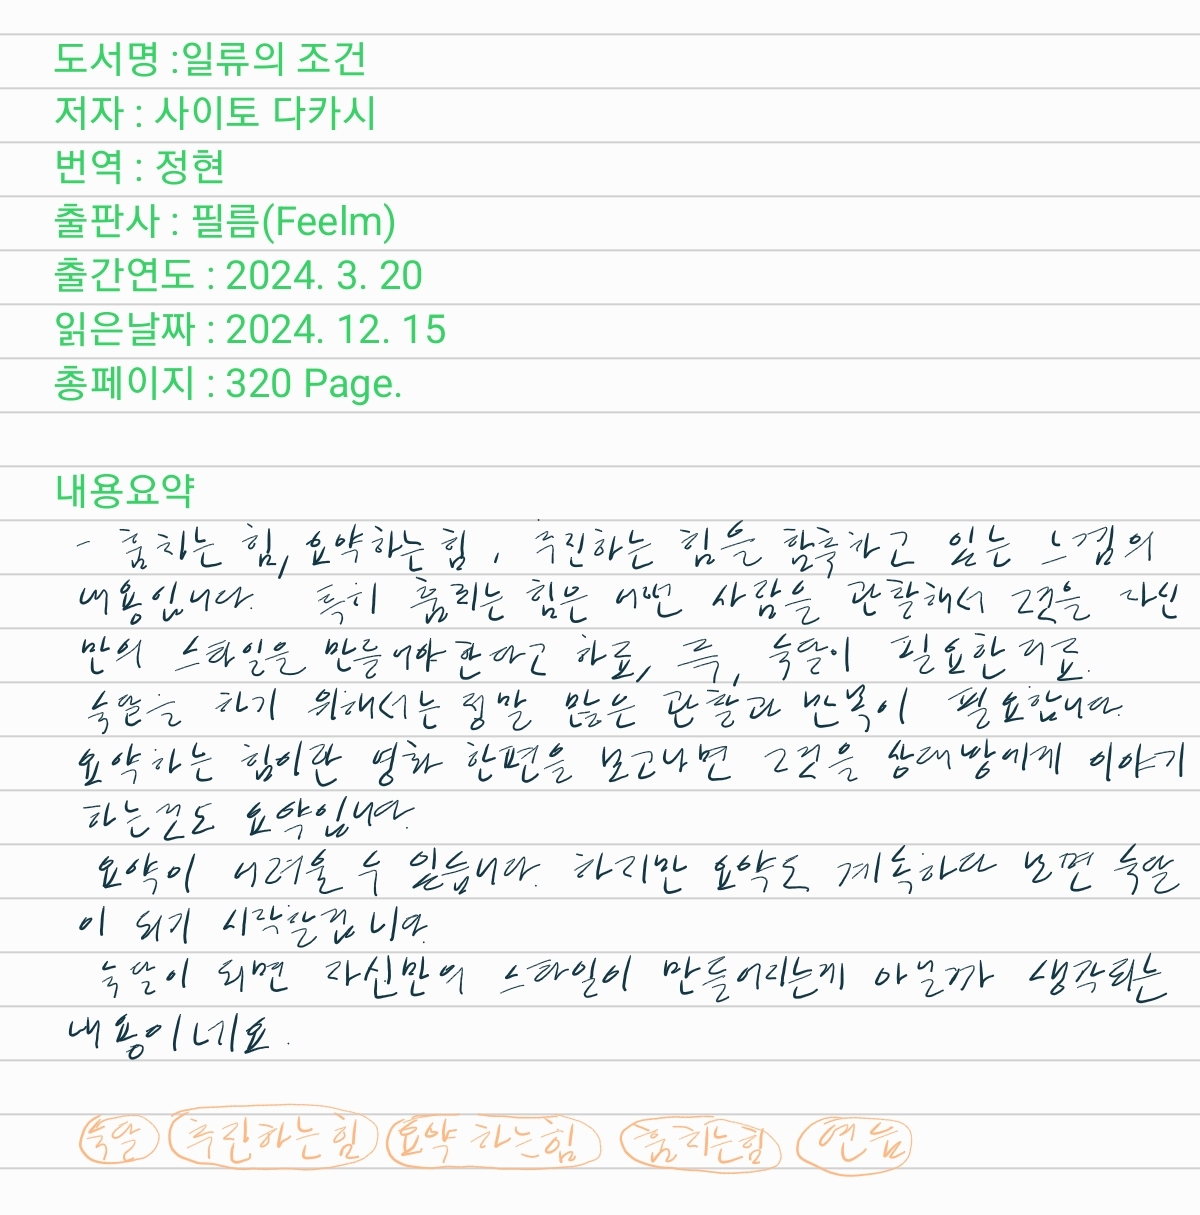 도서명 :일류의 조건
저자 : 사이토 다카시
번역 : 정현
출판사 : 필름(Feelm)
출간연도 : 2024. 3. 20
읽은날짜 : 2024. 12. 15
총페이지 : 320 Page.
내용요약
- 훔치는 힘, 요약하는 힘, 추진하는 힘을 함축하고 있는 느낌의
내용입니다. 특히 훔치는 힘은 어떤 사람을 관찰해서 그것을 자신
만의 스타일을 만들어야 한다고 하죠, 즉, 숙달이 필요한 거죠.
숙달을 하기 위해서는 정말 많은 관찰과 반복이 필요합니다.
요약하는 힘이란 영화 한편을 보고나면 그것을 상대방에게 이야기
하는것도 요약입니다.
요약이 어려울 수 있습니다. 하지만 요약도 계속하다 보면 숙달
이 되기 시작할겁니다.
숙달이 되면 자신만의 스타일이 만들어지는게 아닐까 생각되는
내용이네요.
숙달 추진하는힘 요약 하는힘 훔치는힘 연습